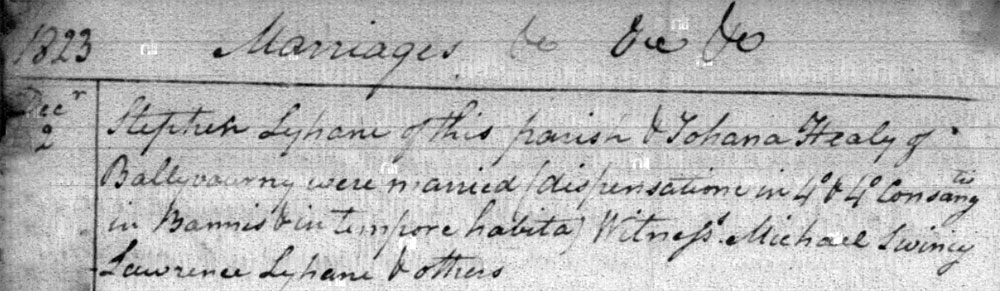 1823 Marriages &c &c &c
Decr 2 Stephen Lyhane of this parish & Johana Healy of
Ballyvourny were married (dispensatione in 4° & 4° Consangtis
in Bannis & in tempore habita) Witness.s Michael Swiney
Lawrence Lyhane & others